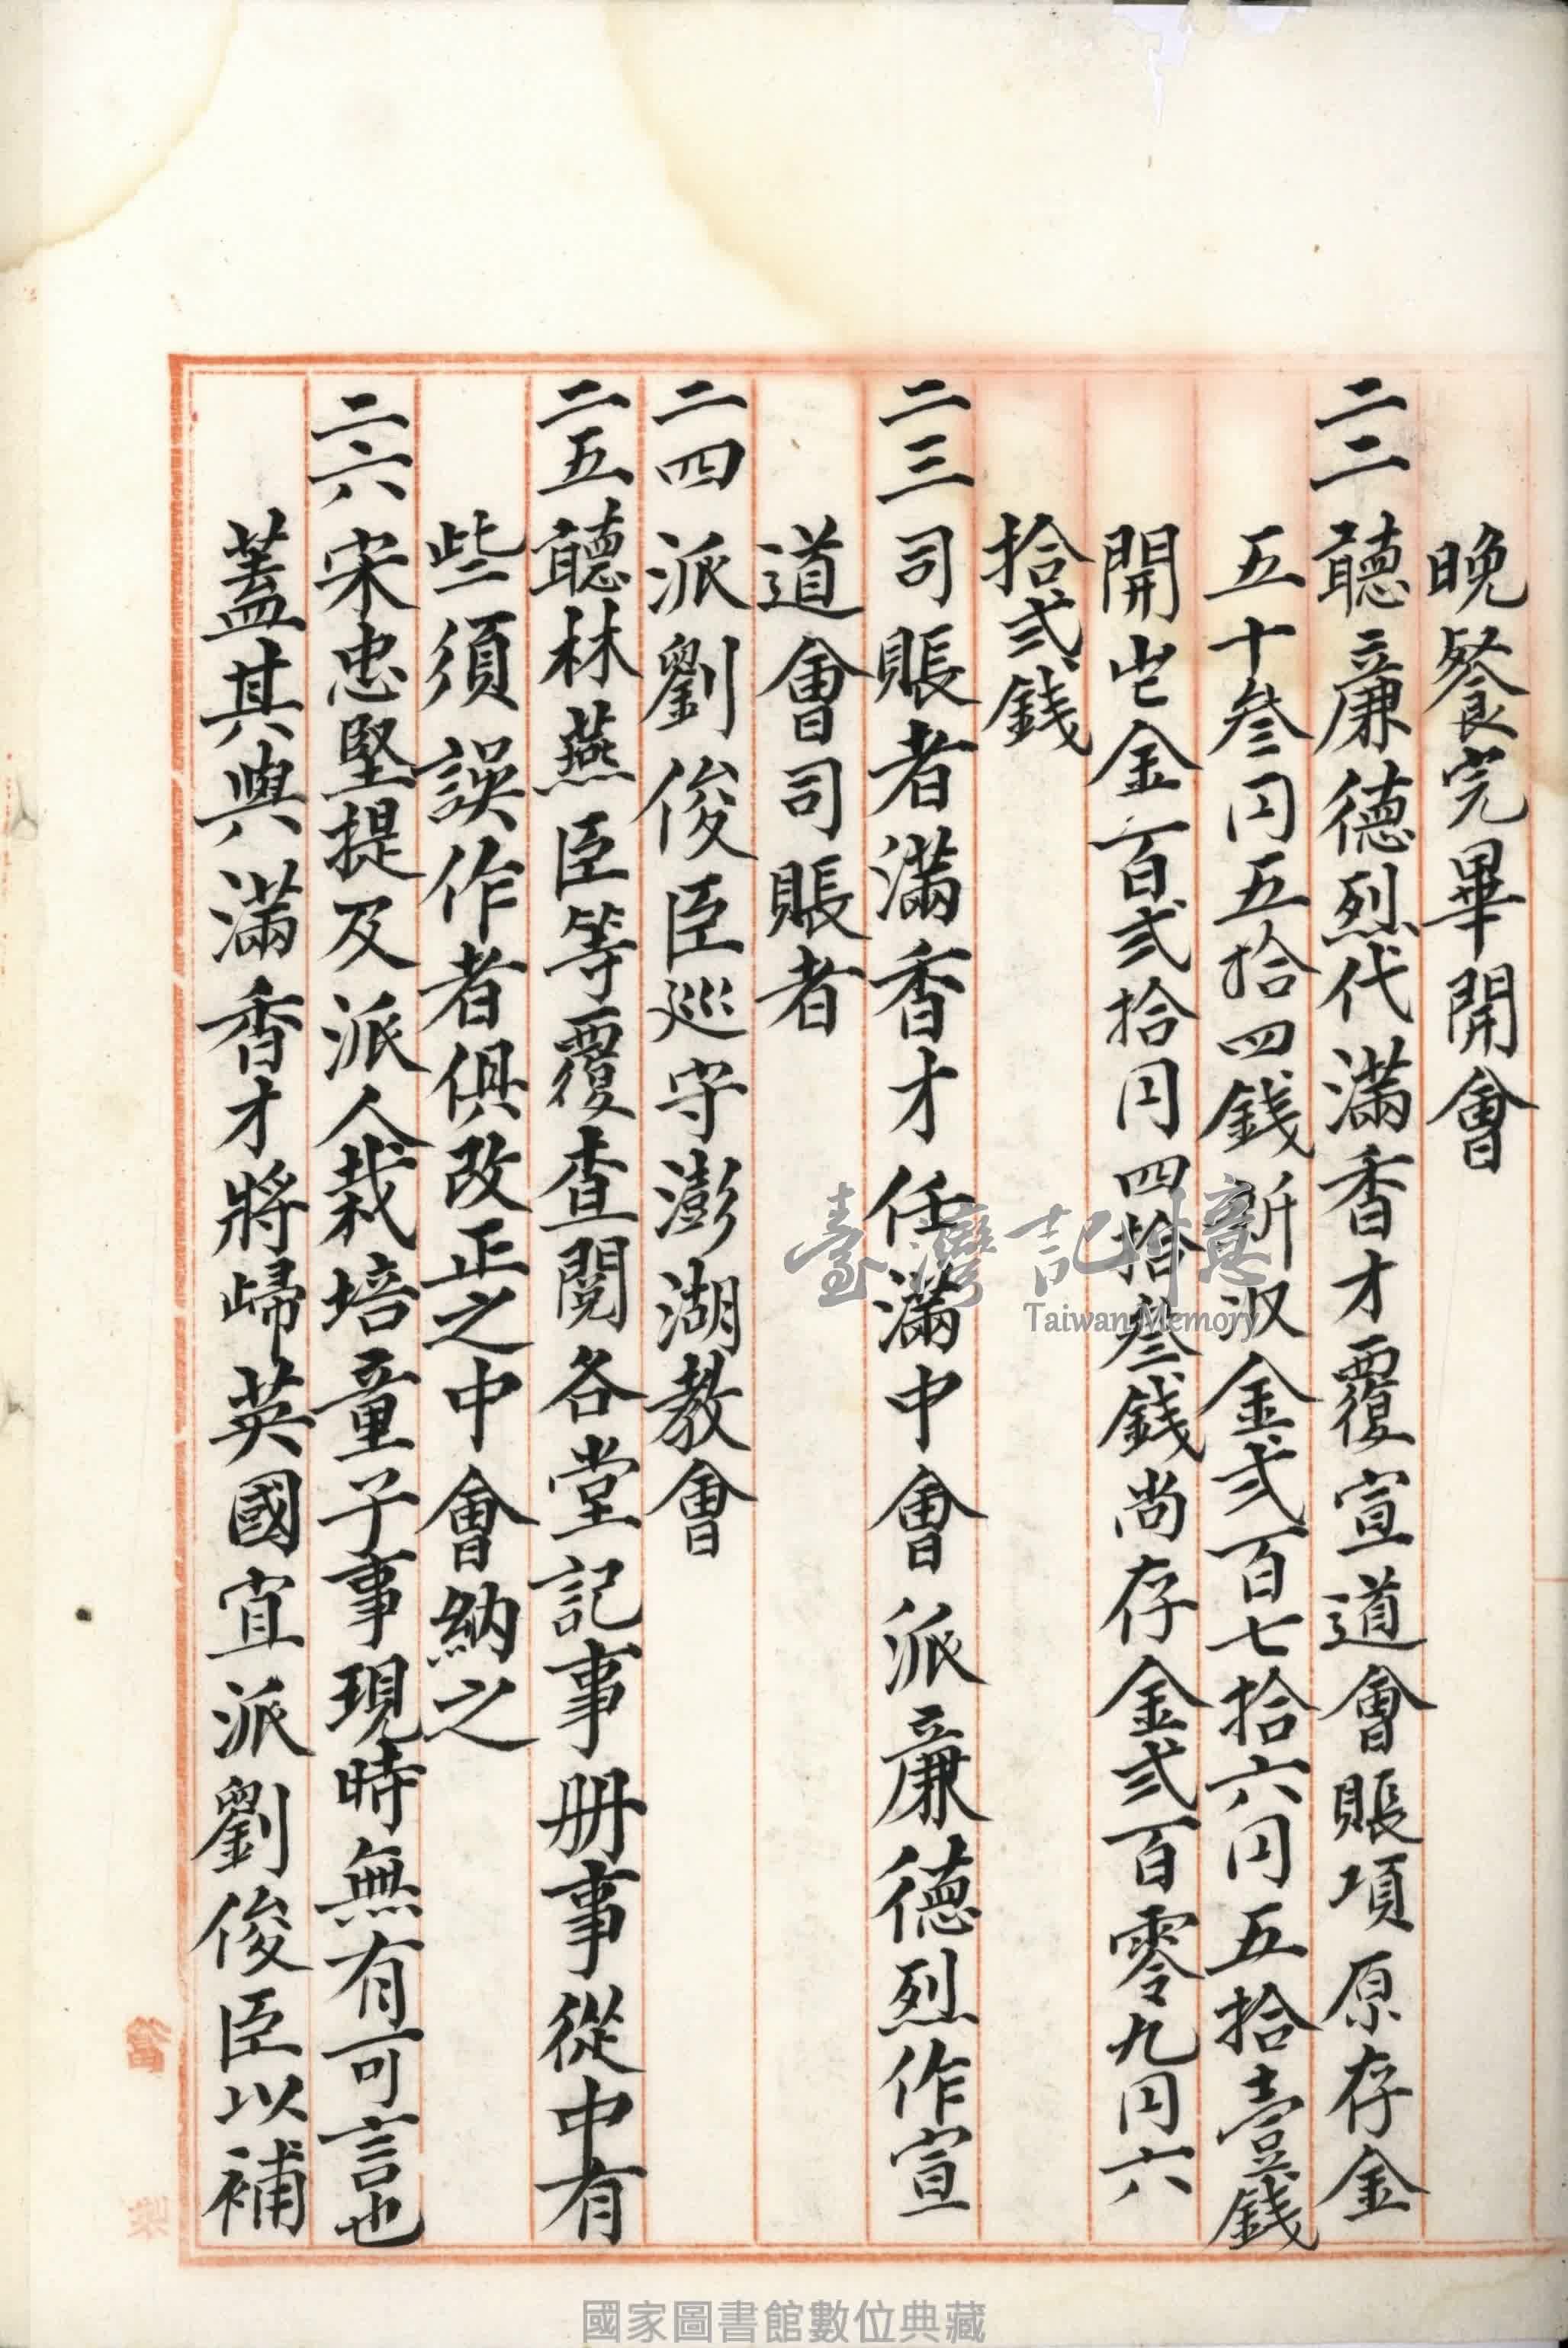 晚餐完畢開會
二二 聽廉德烈代滿香才覆宣道會賬項原存金
五十叁円五拾四錢新收金弍百七拾六円五拾壹錢
開出金一百弍拾円四拾叁錢尚存金弍百零九円六
拾弍錢
二三 司賬者滿香才任滿中會派廉德烈作宣
道會司賬者
二四 派劉俊臣巡守澎湖教會
二五 聽林燕臣等覆查閱各堂記事册事從中有
些須誤作者俱改正之中會納之
二六 宋忠堅提及派人栽培童子事現時無有可言也
蓋其與滿香才將歸英國宜派劉俊臣以補
臺灣記憶
Taiwan Memory
國家圖書館數位典藏